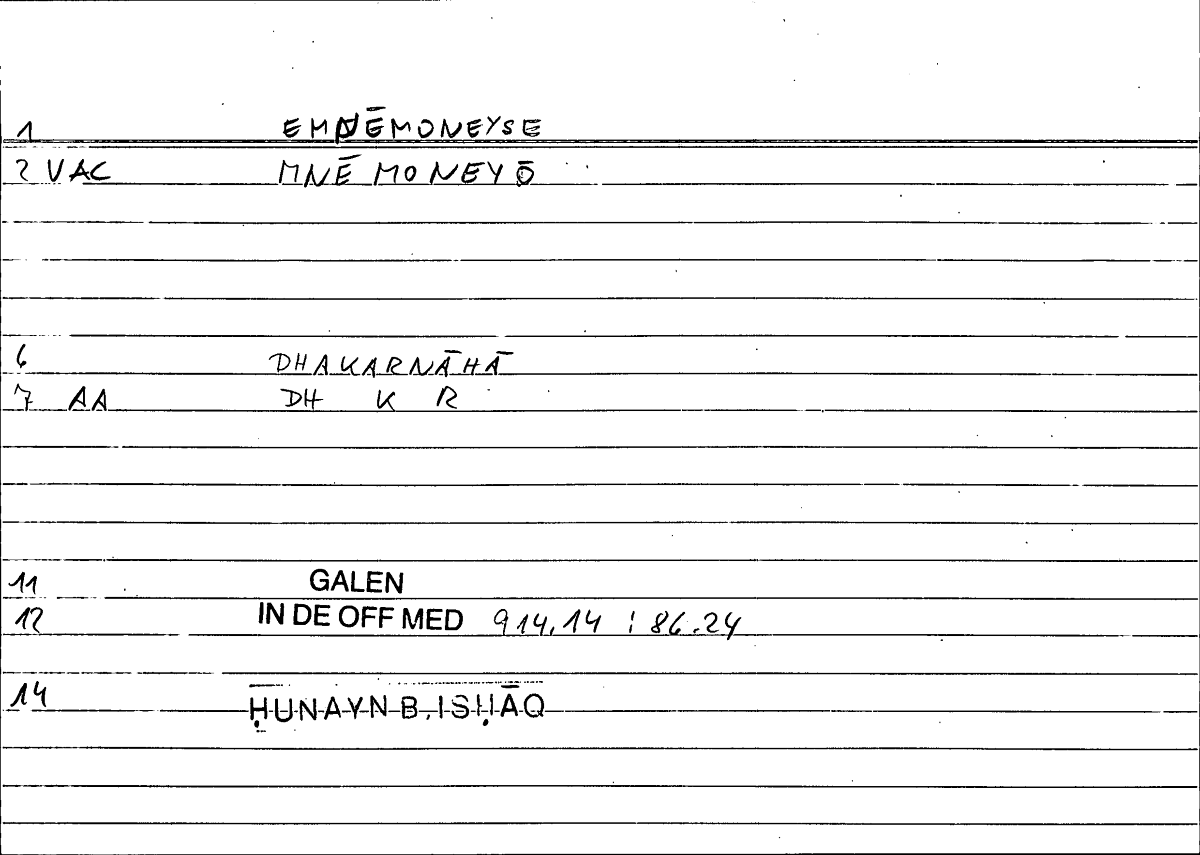 1 EMNĒMONEYSE
2 VAC MNĒMONEYŌ
6 DHAKARNĀHĀ
7 AA DH K R
11 GALEN
12 IN DE OFF MED 914.14 : 86.24
14 ḤUNAYN B. ISḤĀQ